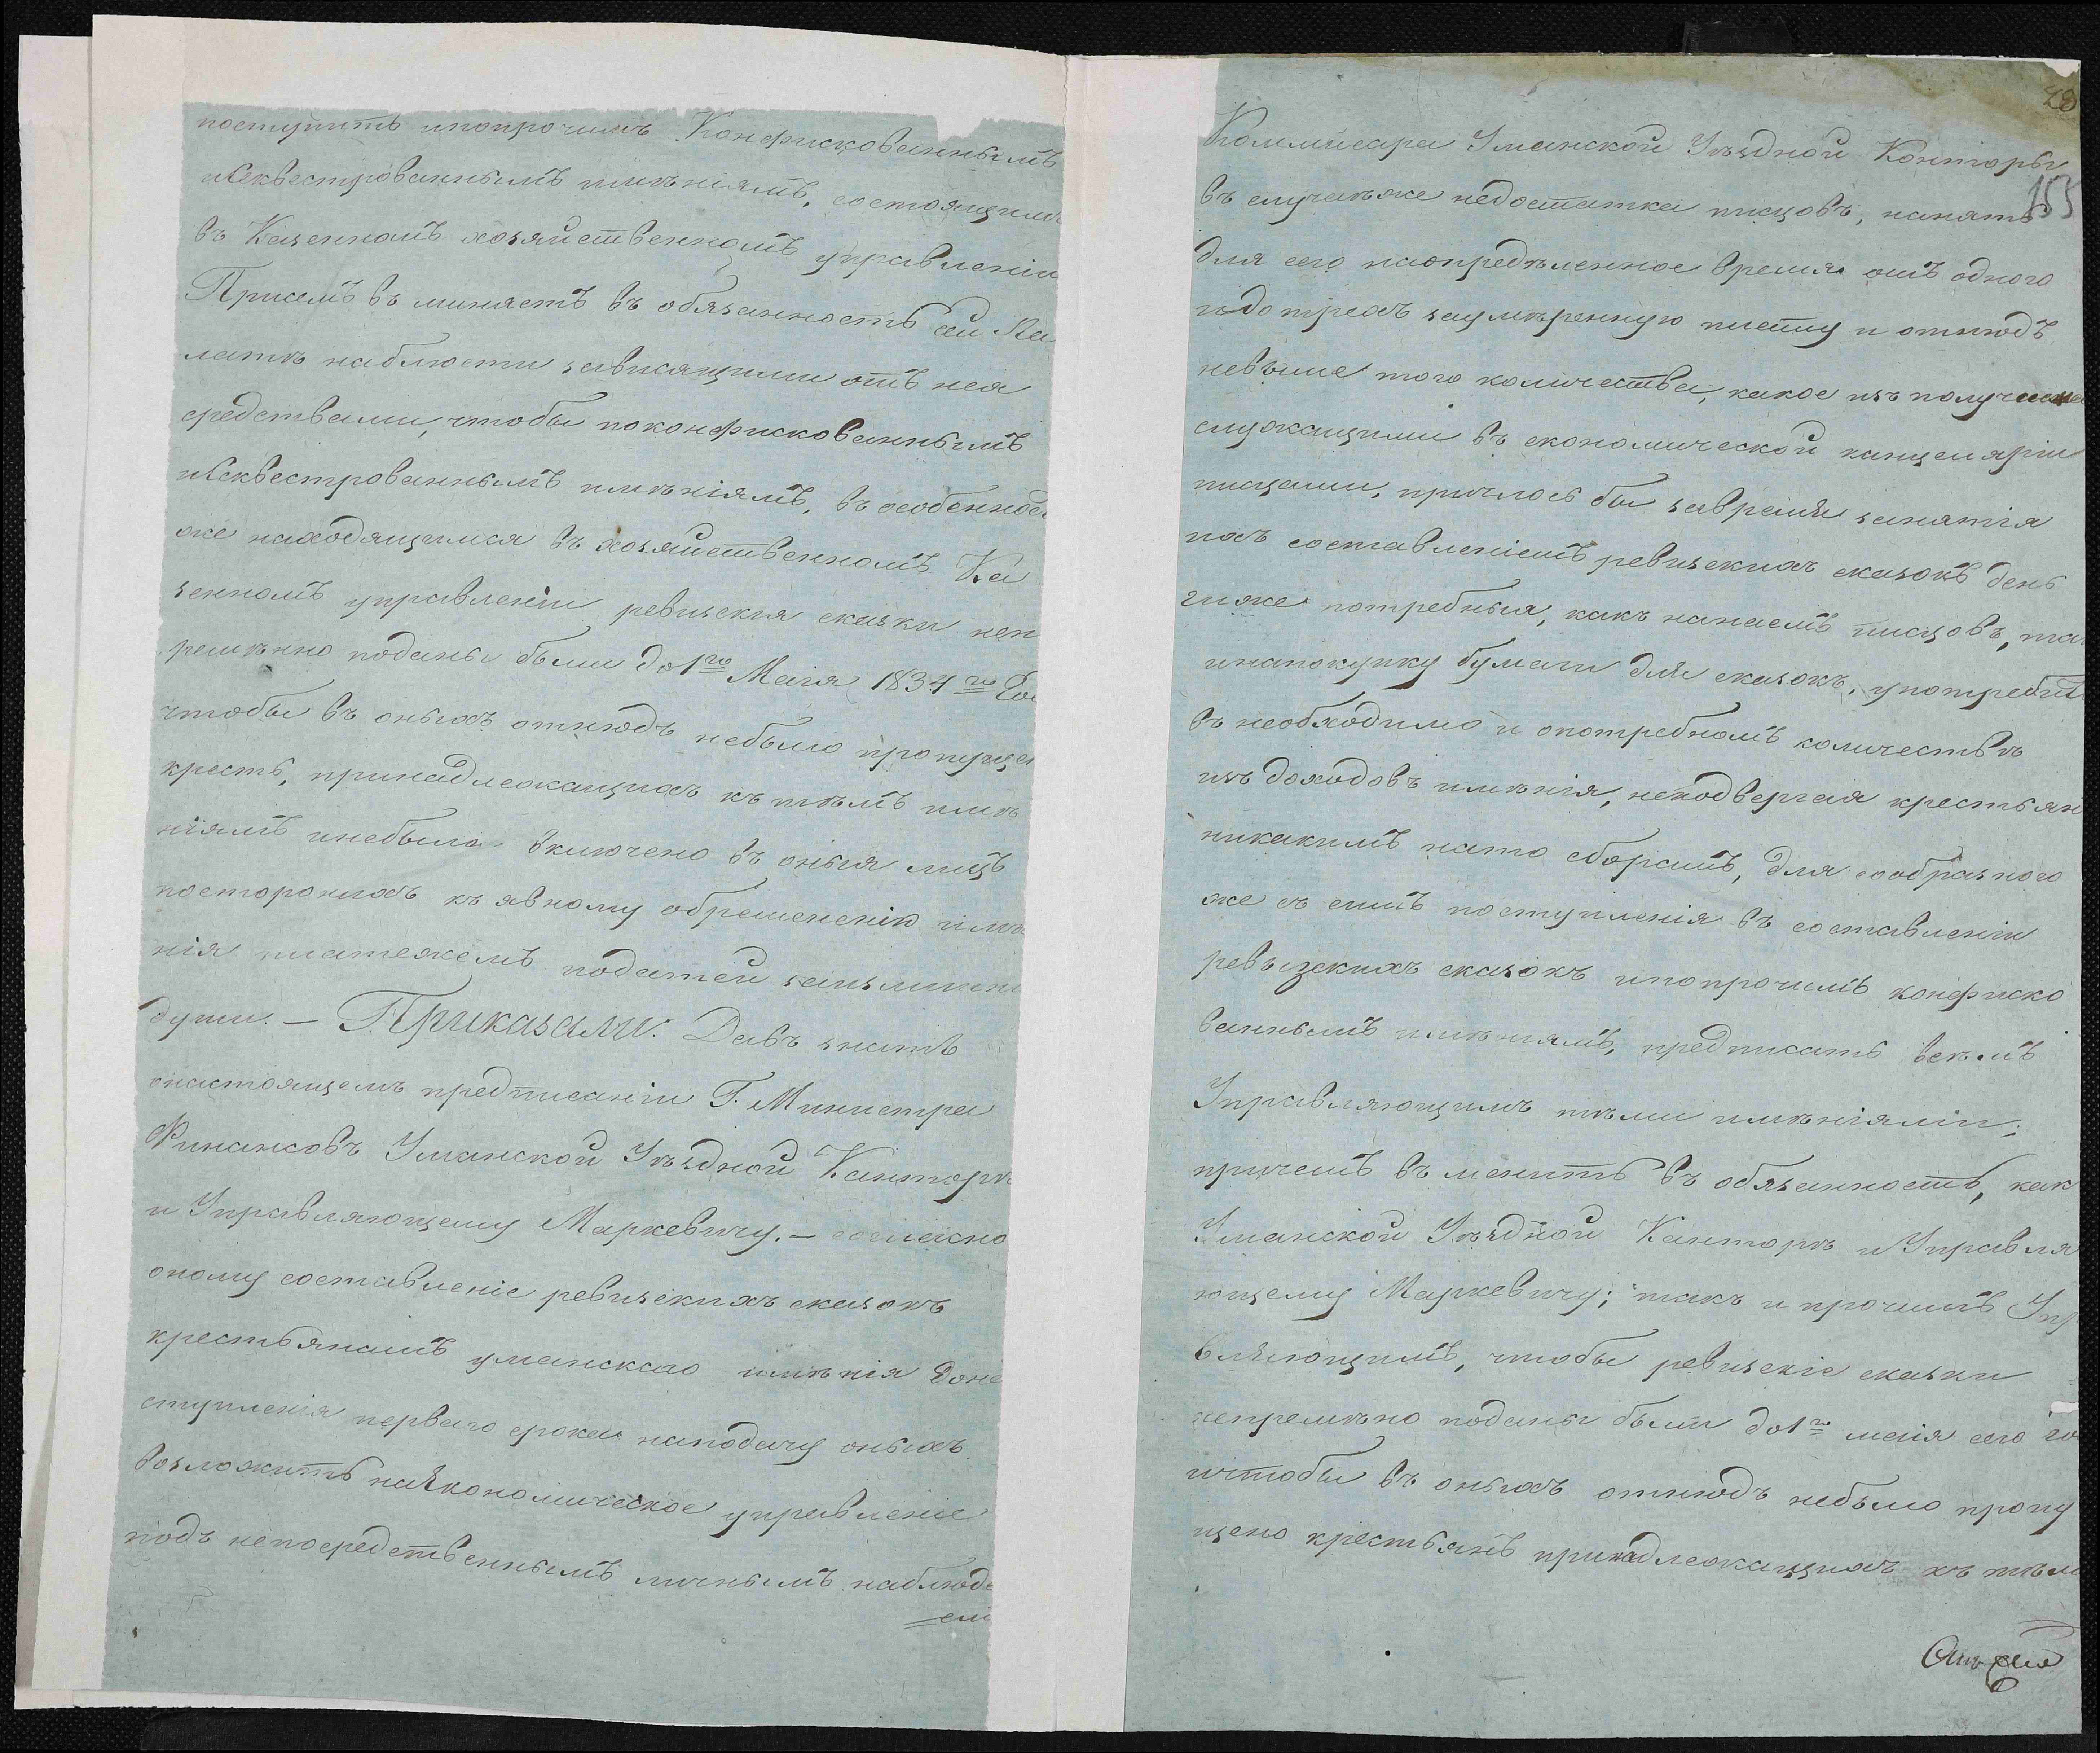 поступить ипопрочимъ Конфискованнымъ
иСеквестрованнымъ имѣніямъ, состоящимъ
въ Казенномъ хозяйственномъ управленіи
Присемъ въ миняетъ въ обязанность сей Па
латѣ наблюсти зависящими отъ нея
средствами, чтобы поконфискованнымъ
иСеквестрованнымъ имѣніямъ, въ особенност
же находящимся въ хозяйственномъ Ка
зенномъ управленіи ревизскія сказки неп
ремѣнно поданы были до 1го Маія 1834го Го
чтобы въ оныхъ отнюдъ небыло пропущен
крестъ, принадлежащихъ къ тѣмъ имѣ
ніямъ инебыло включено въ оныя лицъ
постороннихъ къ явному обремененію имѣ
нія платежемъ податей заизлишни
души. — Приказали: Давъ знать
онастоящемъ предписаніи Г. Министра
Финансовъ Уманской Уѣздной Канторѣ
и Управляющему Маркевичу. — согласно
оному составленіе ревизскихъ сказокъ
крестьянамъ уманскаго имѣнія Доне
ступленія перваго срока наподачу оныхъ
возложить наЭкономическое управленіе
подъ непосредственнымъ личнымъ наблюде
емъ
28
Коммисара Уманской Уѣздной Конторы
153
въ случаѣже недостатка писцовъ, нанять
для сего наопредѣленное время отъ одного
идо трехъ заумѣренную плату и отнюдъ
невыше того количества, какое изъ получаема
служащими въ економической канцеляріи
писцами, пришлось бы завремя занятія
ихъ составленіемъ ревизскихъ сказокъ день
гиже потребныя, какъ нанаемъ писцовъ, та
инапокупку бумаги для сказокъ, употребит
въ необходимо и опотребномъ количествѣ
изъ доходовъ имѣнія, неподвергая крестьян
никакимъ нато сборамъ, для сообразного
же съ симъ поступленія въ составленіи
ревъизскихъ сказокъ ипопрочимъ конфиско
ваннымъ имѣніямъ, предписать всѣмъ
Управляющимъ тѣми имѣніями;
причемъ въ менить въ обязанность, как
Уманской Уѣздной Канторѣ и Управля
ющему Маркевичу; такъ и прочимъ Упр
вляющимъ, чтобы ревизскіе сказки
непремѣно поданы были до 1го маія сего го
ичтобы въ оныхъ отнюдъ небыло пропу
щено крестьянъ принадлежащихъ къ тѣм